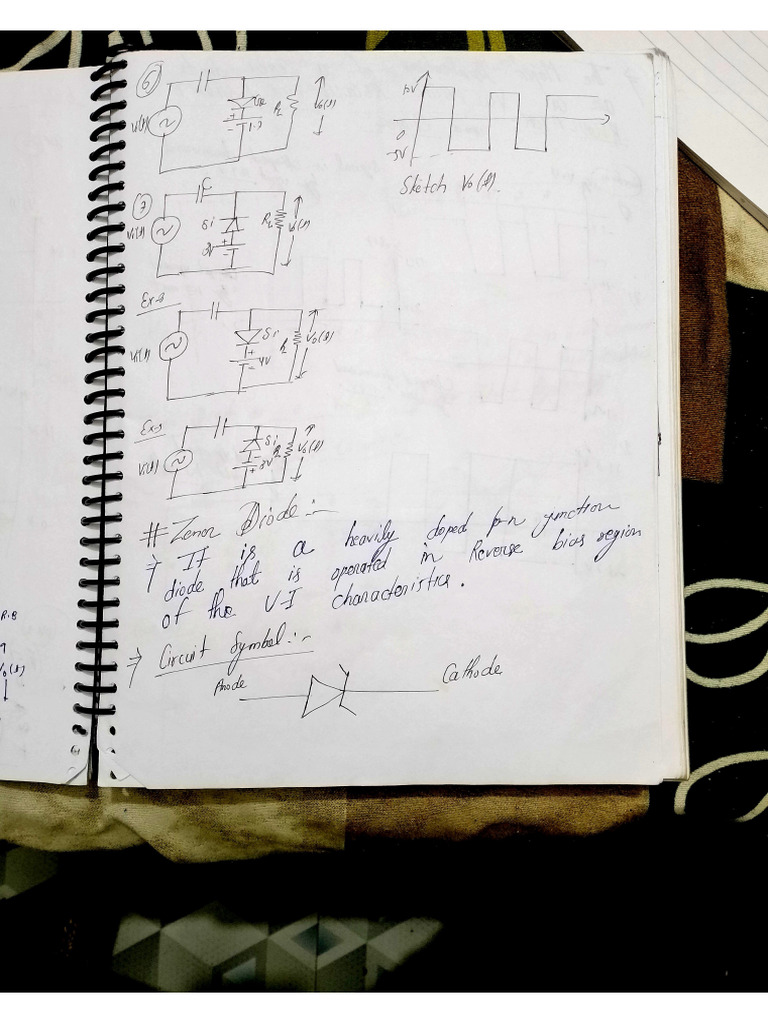 6
Vi(t)
RL
Vo(t)
10V
0
-5V
Sketch Vo(t).
7
C
Vi(t)
Si
3V
RL
Vo(t)
Vi(t)
Si
4V
RL
Vo(t)
Vi(t)
Si
3V
RL
Vo(t)
# Zenor Diode:-
⇒ It is a heavily doped p-n junction
diode that is operated in Reverse bias region
of the V-I characteristics.
⇒ Circuit Symbol:-
Anode
Cathode
R.B
Vo(t)